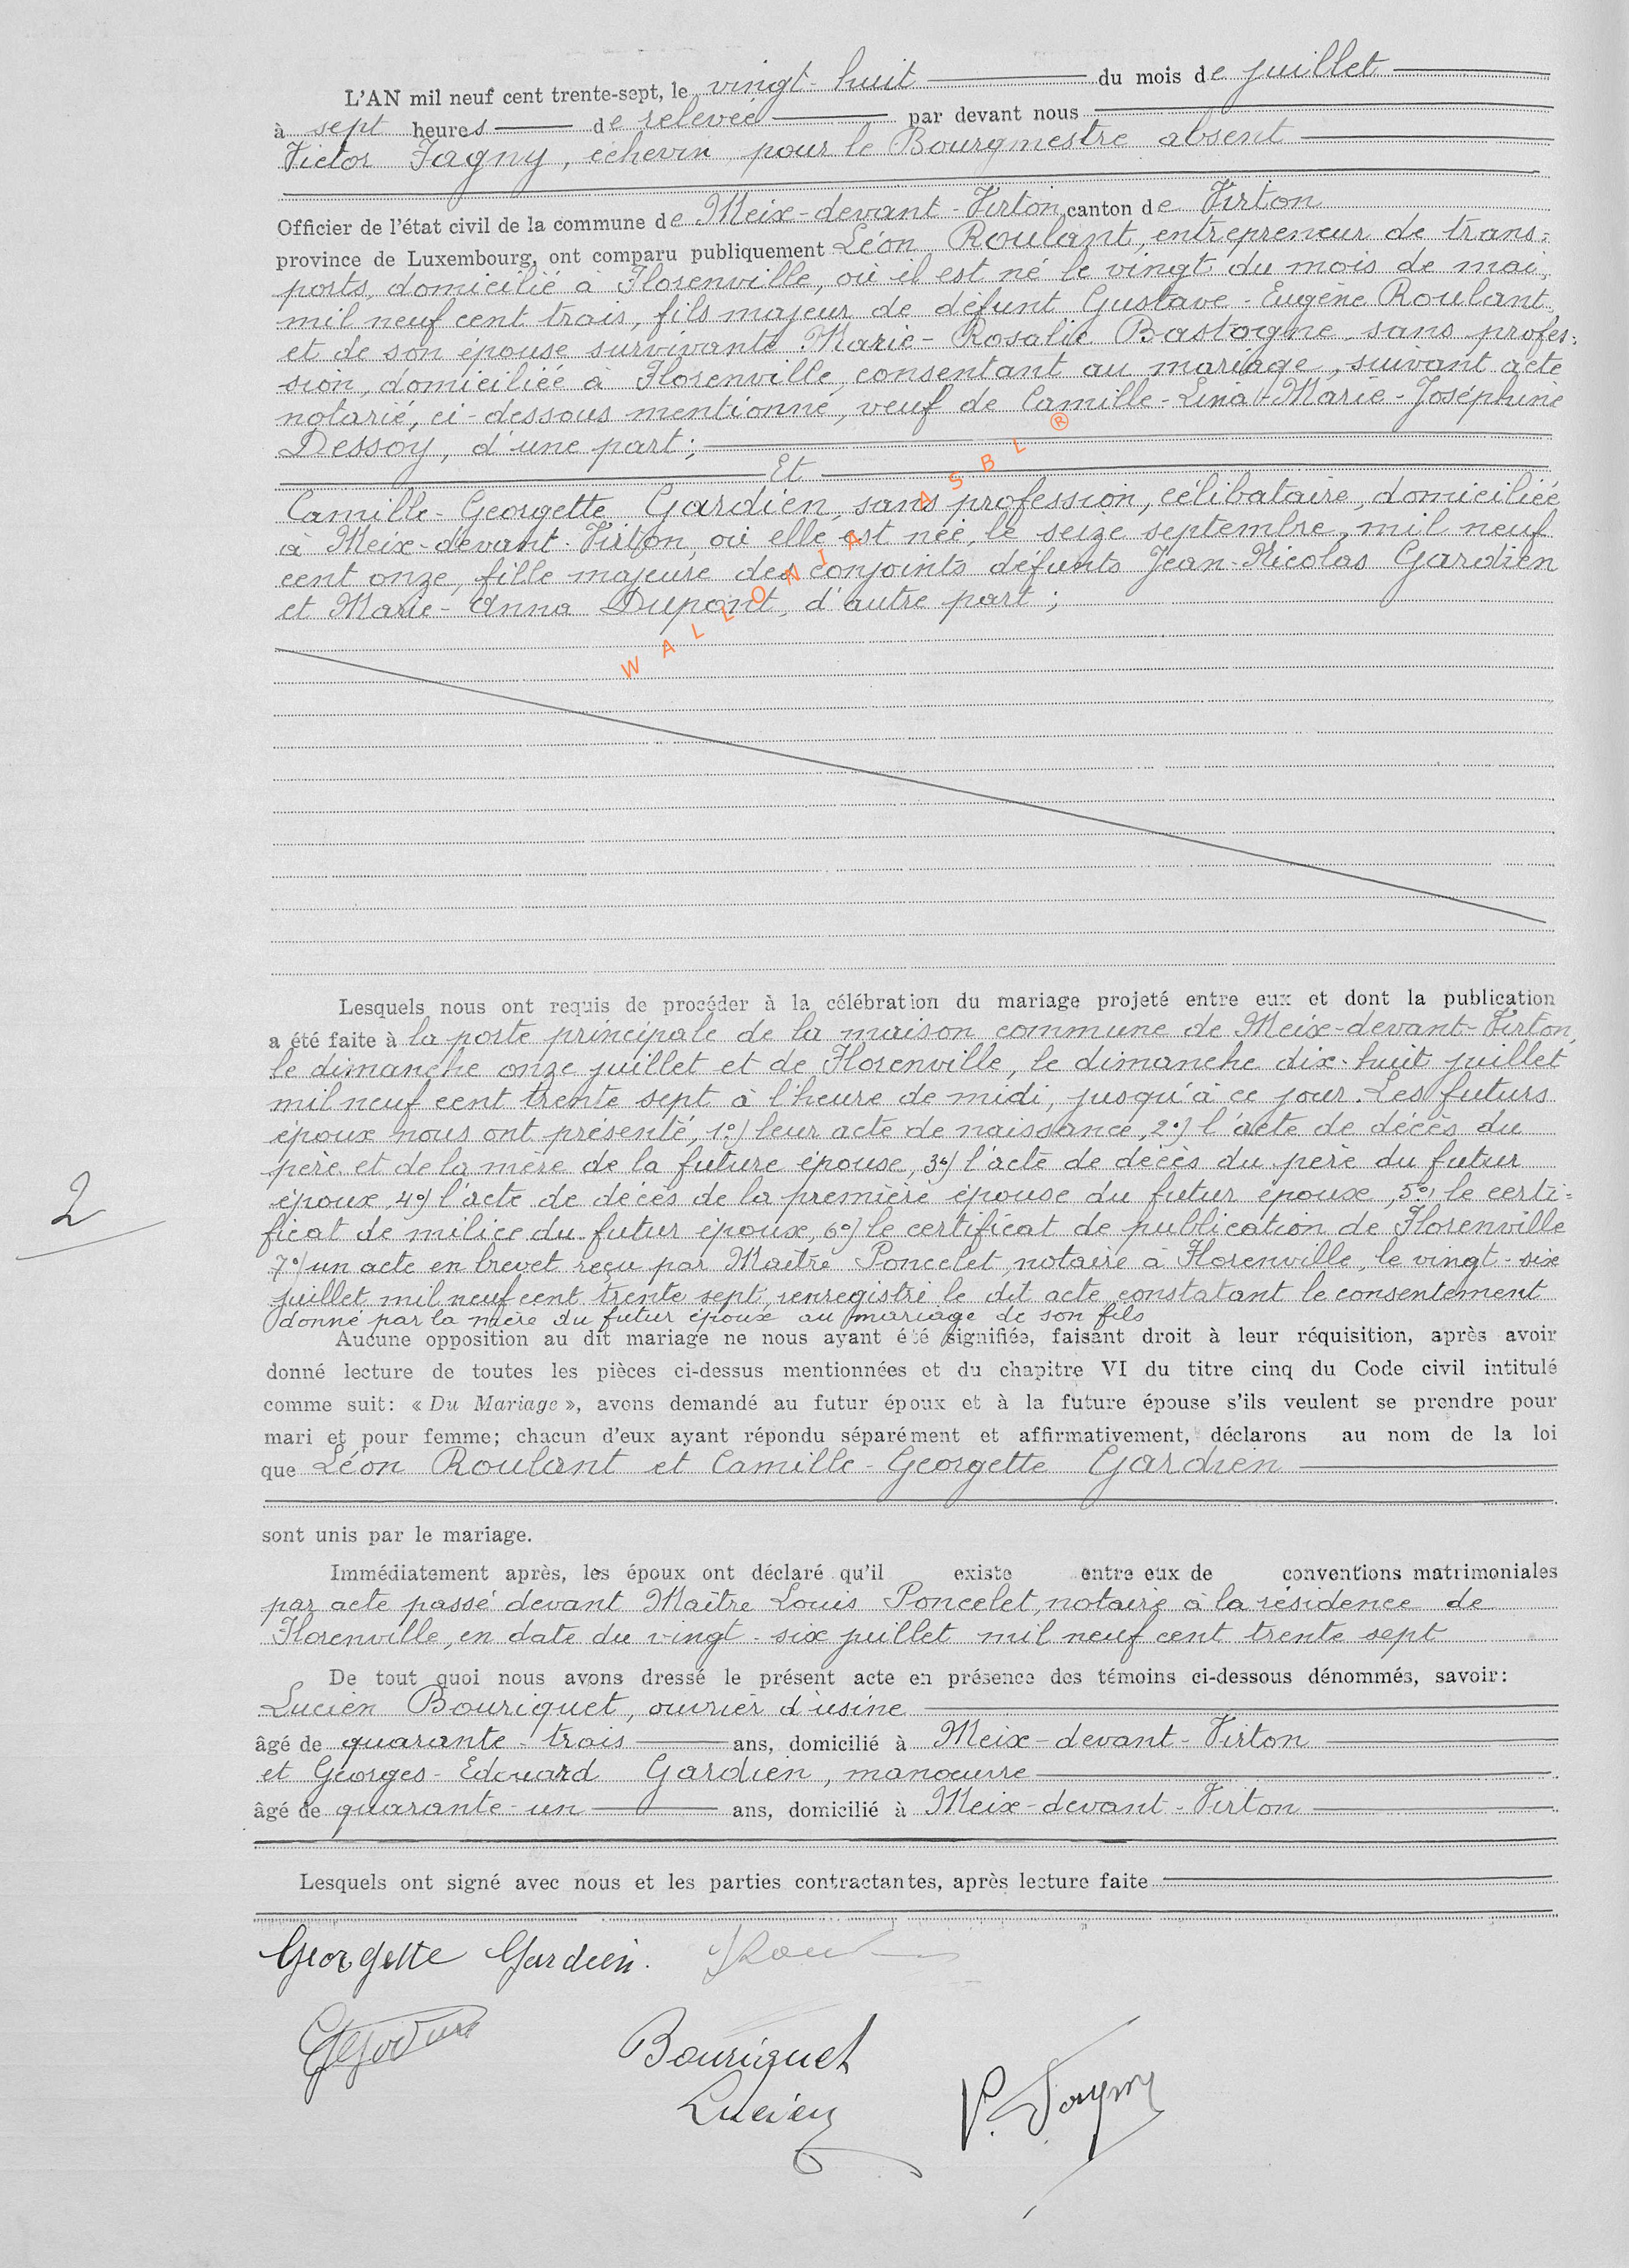 L'AN mil neuf cent trente-sept, le vingt-huit du mois de juillet
à sept heures de relevée par devant nous
Victor Jagny, échevin pour le Bourgmestre absent
Officier de l'état civil de la commune de Meix-devant-Virton, canton de Virton
province de Luxembourg, ont comparu publiquement Léon Roulant, entrepreneur de trans=
ports, domicilié à Florenville, où il est né le vingt du mois de mai,
mil neuf cent trois, fils majeur de défunt Gustave-Eugène Roulant
et de son épouse survivante Marie-Rosalie Bastogne, sans profes=
sion, domiciliée à Florenville, consentant au mariage, suivant acte
notarié, ci-dessous mentionné, veuf de Camille-Lina-Marie-Joséphine
Dessoy, d'une part;
Et
Camille-Georgette Gardien, sans profession, célibataire, domiciliée
à Meix-devant-Virton, où elle est née, le seize septembre, mil neuf
cent onze, fille majeure des conjoints défunts Jean-Nicolas Gardien
et Marie-Anna Dupont, d'autre part;
WALLONIA ASBL ®
Lesquels nous ont requis de procéder à la célébration du mariage projeté entre eux et dont la publication
a été faite à la porte principale de la maison commune de Meix-devant-Virton,
le dimanche onze juillet et de Florenville, le dimanche dix-huit juillet
mil neuf cent trente sept à l'heure de midi, jusqu'à ce jour. Les futurs
époux nous ont présenté, 1°) leur acte de naissance, 2°) l'acte de décès du
père et de la mère de la future épouse, 3°) l'acte de décès du père du futur
époux, 4°) l'acte de décès de la première épouse du futur époux, 5°) le certi=
2
ficat de milice du futur époux, 6°) le certificat de publication de Florenville
7°) un acte en brevet reçu par Maître Poncelet, notaire à Florenville, le vingt-six
juillet mil neuf cent trente sept, enregistré le dit acte constatant le consentement
donné par la mère du futur époux au mariage de son fils
Aucune opposition au dit mariage ne nous ayant été signifiée, faisant droit à leur réquisition, après avoir
donné lecture de toutes les pièces ci-dessus mentionnées et du chapitre VI du titre cinq du Code civil intitulé
comme suit: « Du Mariage », avons demandé au futur époux et à la future épouse s'ils veulent se prendre pour
mari et pour femme; chacun d'eux ayant répondu séparément et affirmativement, déclarons au nom de la loi
que Léon Roulant et Camille-Georgette Gardien
sont unis par le mariage.
Immédiatement après, les époux ont déclaré qu'il existe entre eux de conventions matrimoniales
par acte passé devant Maître Louis Poncelet, notaire à la résidence de
Florenville, en date du vingt-six juillet mil neuf cent trente sept
De tout quoi nous avons dressé le présent acte en présence des témoins ci-dessous dénommés, savoir:
Lucien Bouriquet, ouvrier d'usine
âgé de quarante-trois ans, domicilié à Meix-devant-Virton
et Georges-Edouard Gardien, manœuvre
âgé de quarante-un ans, domicilié à Meix-devant-Virton
Lesquels ont signé avec nous et les parties contractantes, après lecture faite
Georgette Gardien.
Bouriquet
Lucien
V. Jagny